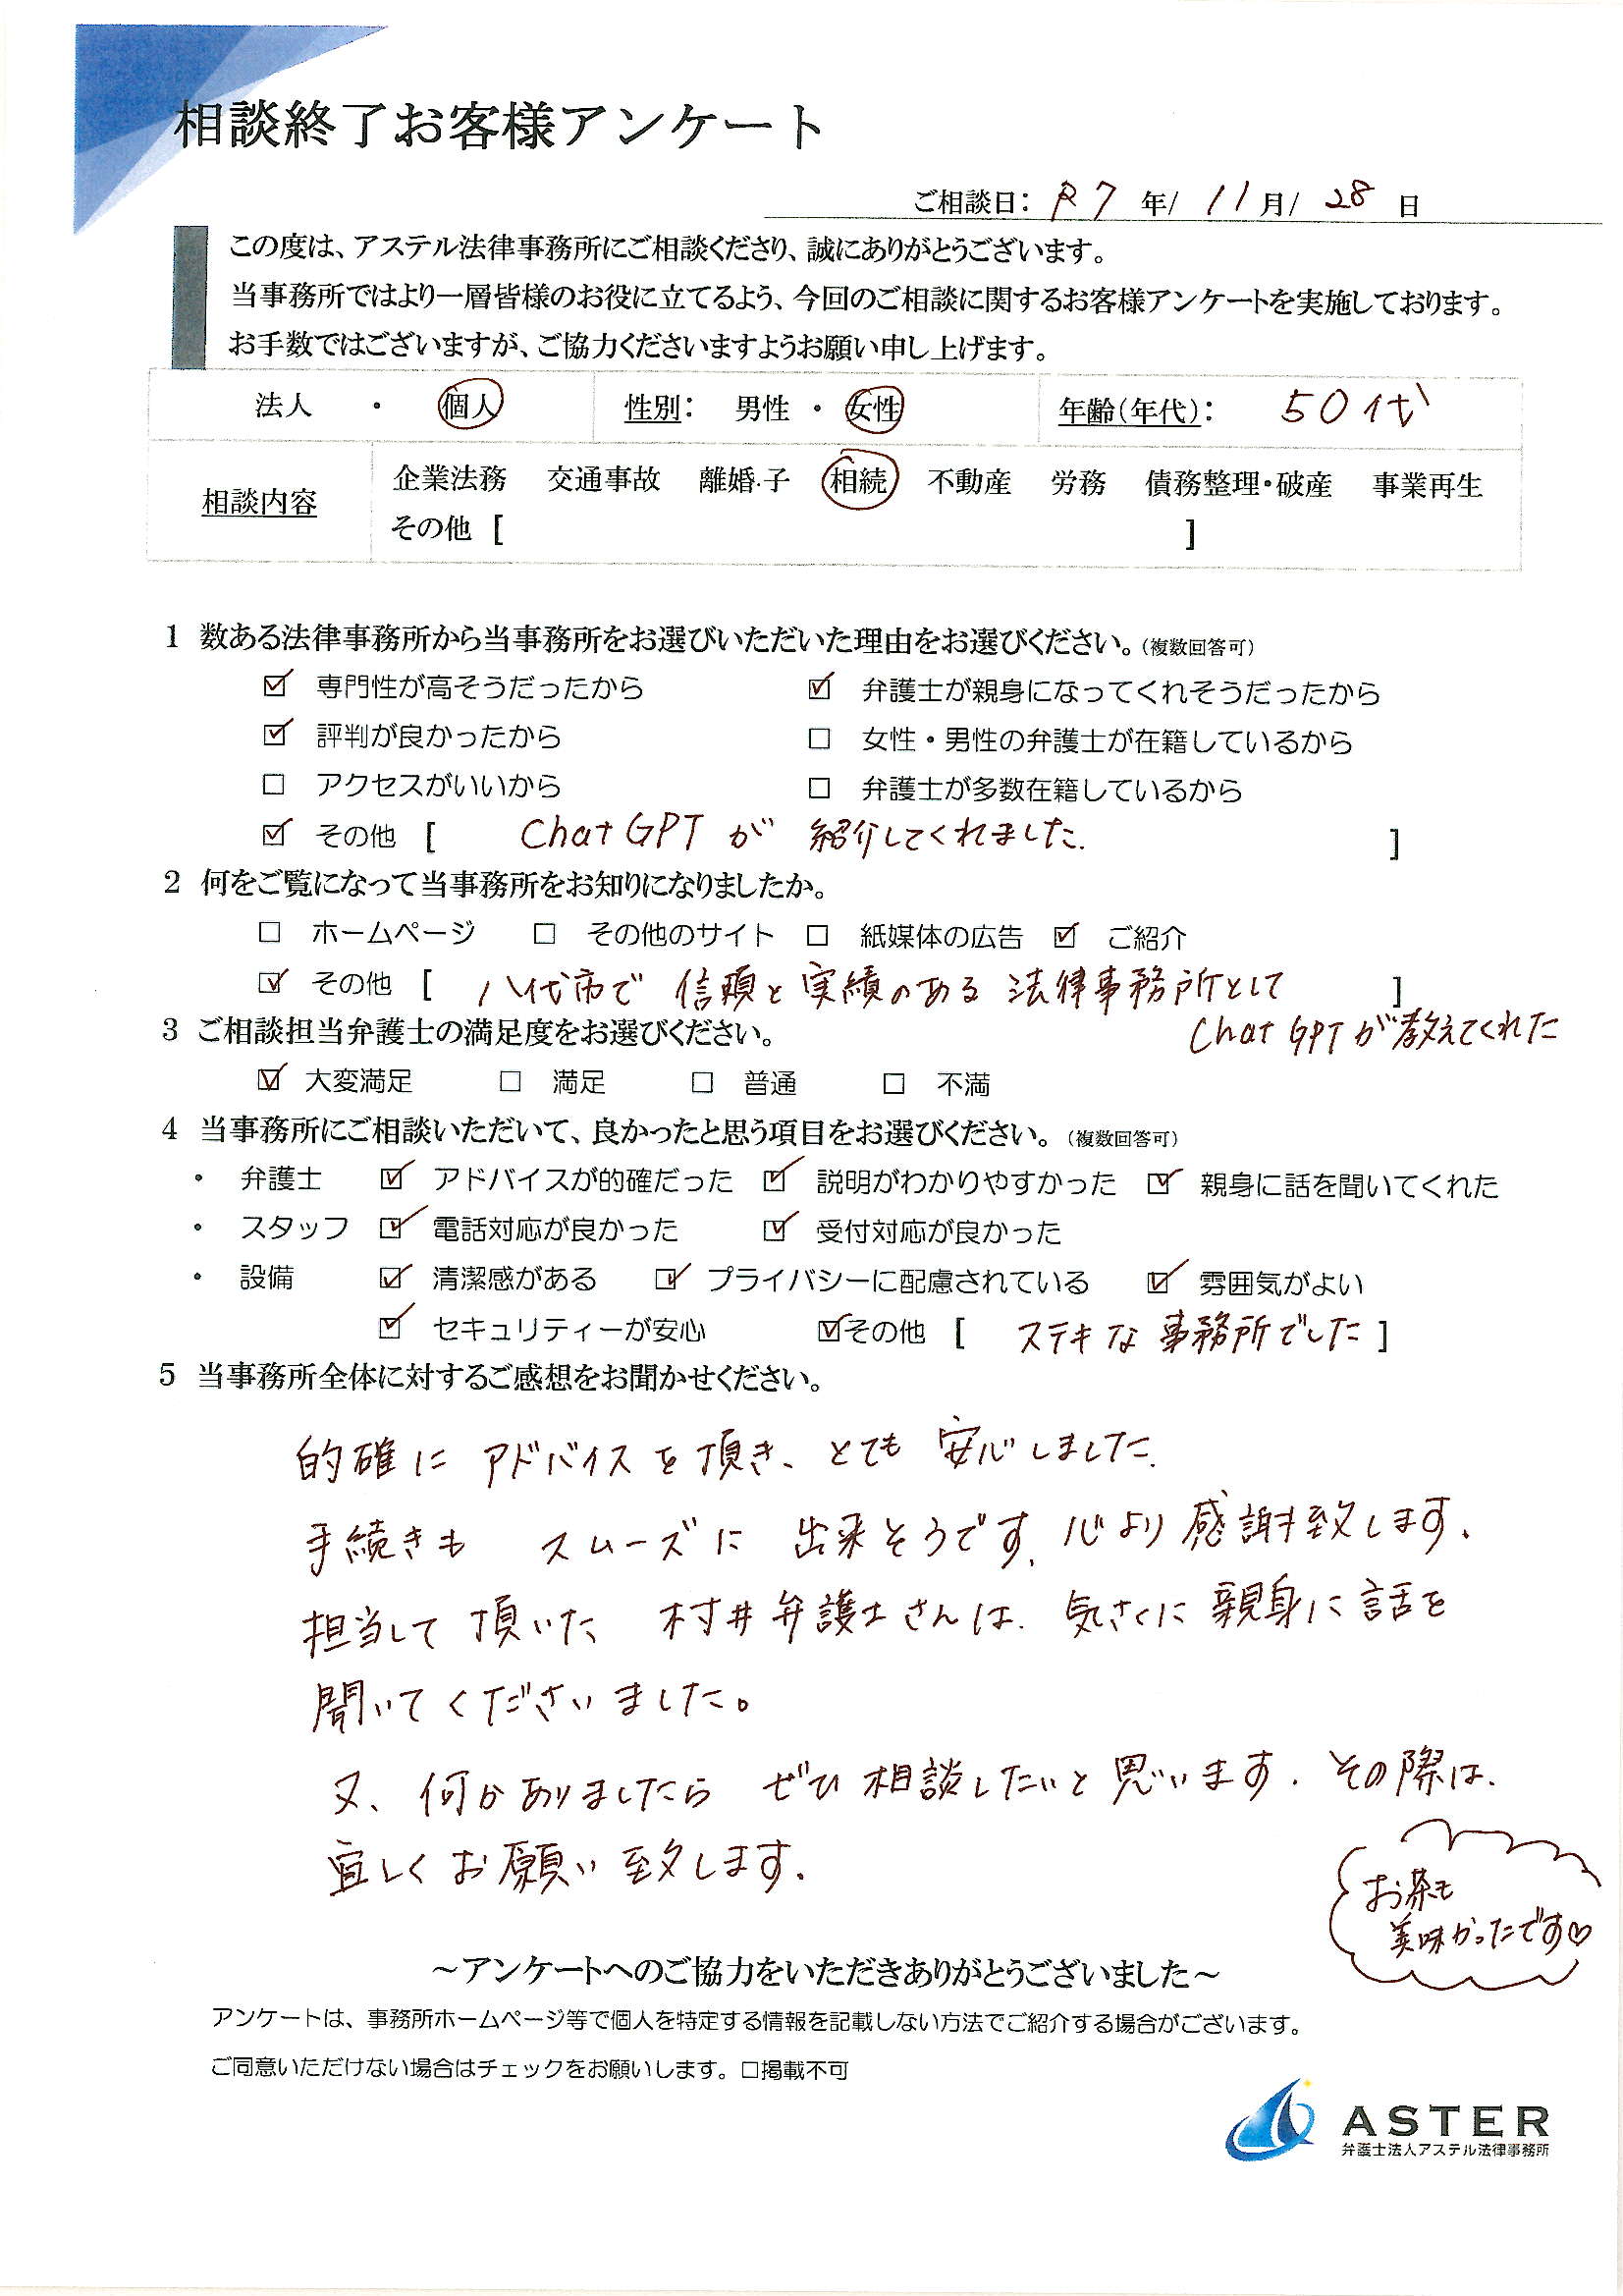 相談終了お客様アンケート
ご相談日： R7 年/ 11 月/ 28 日
この度は、アステル法律事務所にご相談くださり、誠にありがとうございます。
当事務所ではより一層皆様のお役に立てるよう、今回のご相談に関するお客様アンケートを実施しております。
お手数ではございますが、ご協力くださいますようお願い申し上げます。
法人 ・ 個人 性別： 男性 ・ 女性 年齢（年代）： 50代
相談内容 企業法務 交通事故 離婚・子 相続 不動産 労務 債務整理・破産 事業再生
その他 [ ]
1 数ある法律事務所から当事務所をお選びいただいた理由をお選びください。（複数回答可）
☑ 専門性が高そうだったから ☑ 弁護士が親身になってくれそうだったから
☑ 評判が良かったから □ 女性・男性の弁護士が在籍しているから
□ アクセスがいいから □ 弁護士が多数在籍しているから
☑ その他 [ ChatGPTが 紹介してくれました. ]
2 何をご覧になって当事務所をお知りになりましたか。
□ ホームページ □ その他のサイト □ 紙媒体の広告 ☑ ご紹介
☑ その他 [ 八代市で 信頼と実績のある 法律事務所として ]
ChatGPTが教えてくれた
3 ご相談担当弁護士の満足度をお選びください。
☑ 大変満足 □ 満足 □ 普通 □ 不満
4 当事務所にご相談いただいて、良かったと思う項目をお選びください。（複数回答可）
・ 弁護士 ☑ アドバイスが的確だった ☑ 説明がわかりやすかった ☑ 親身に話を聞いてくれた
・ スタッフ ☑ 電話対応が良かった ☑ 受付対応が良かった
・ 設備 ☑ 清潔感がある ☑ プライバシーに配慮されている ☑ 雰囲気がよい
☑ セキュリティーが安心 ☑その他 [ ステキな事務所でした ]
5 当事務所全体に対するご感想をお聞かせください。
的確に アドバイスを頂き、とても 安心しました.
手続きも スムーズに 出来そうです. 心より感謝致します.
担当して頂いた 村井弁護士さんは. 気さくに親身に話を
聞いてくださいました。
又、何かありましたら ぜひ相談したいと思います. その際は.
宜しくお願い致します.
お茶も
美味かったです♡
～アンケートへのご協力をいただきありがとうございました～
アンケートは、事務所ホームページ等で個人を特定する情報を記載しない方法でご紹介する場合がございます。
ご同意いただけない場合はチェックをお願いします。□掲載不可
ASTER
弁護士法人アステル法律事務所